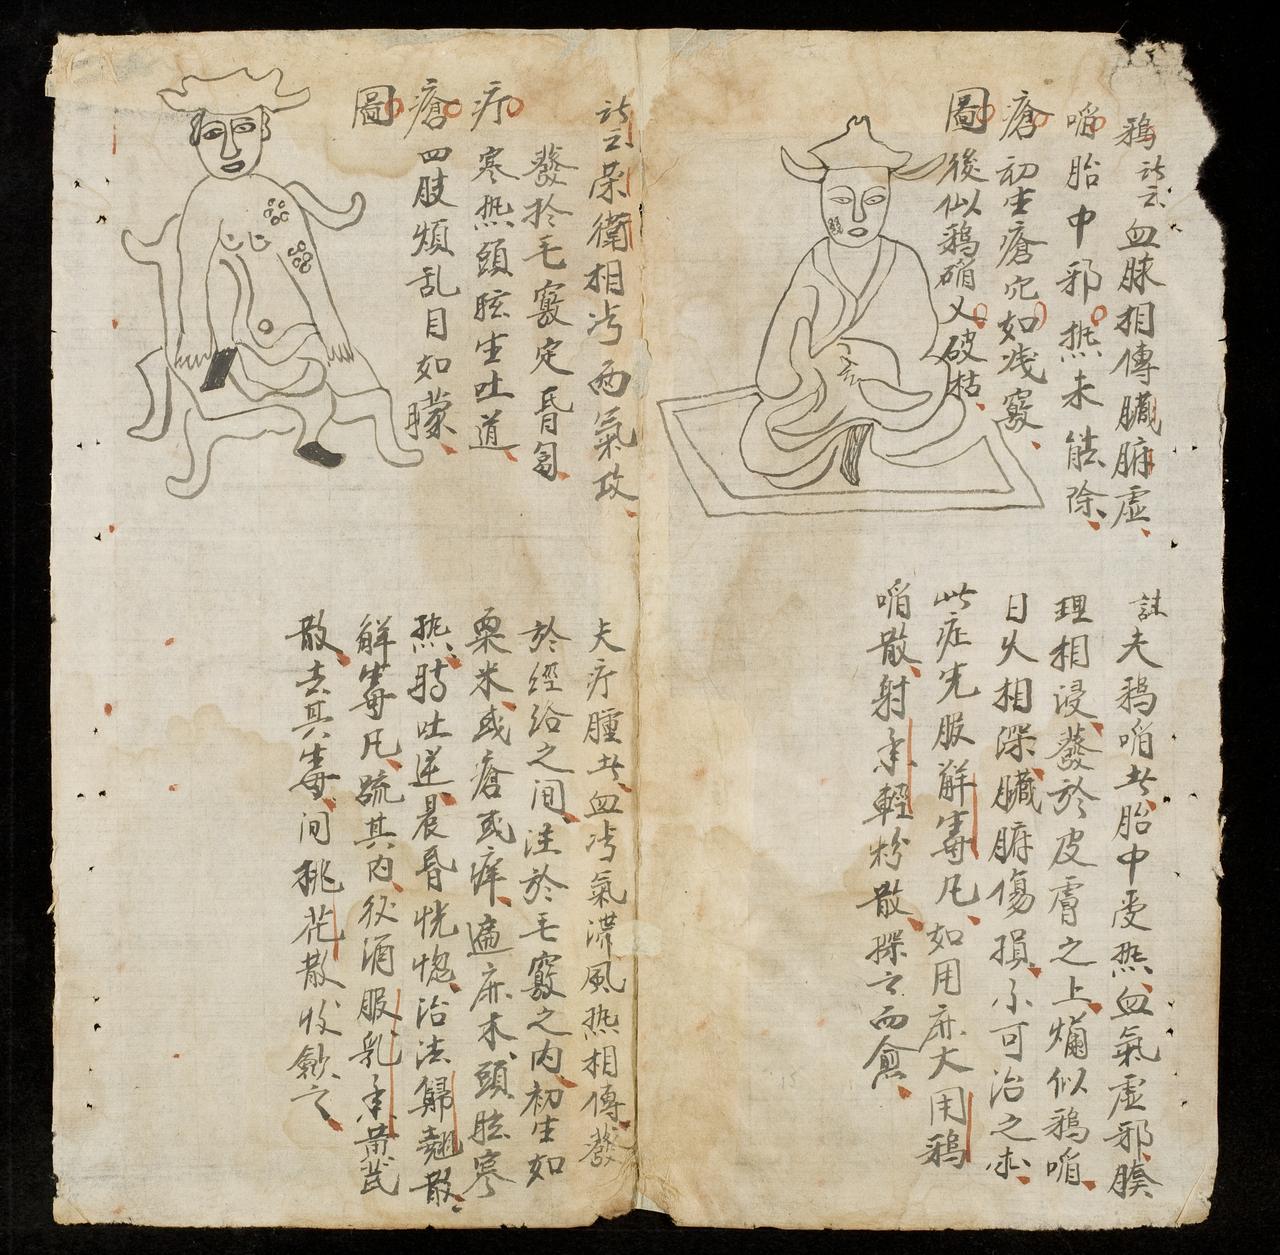 鴉 訣云 血脉相傳臟腑虚
啗 胎中邪热未能除
瘡 初生瘡穴如浅竅
圖 後似鴉啗又破枯
註夫鴉啗者胎中受热血氣虚邪
理相浸發於皮膚之上爛似鴉啗
日久相深臟腑傷損不可治之也
此症先服解毒凡如用麻大用鴉
啗散射香輕粉散搽之而愈
訣云 荣衛相冲两氣攻
發於毛竅定昏
疔 寒热頭眩生吐道
瘡 四肢煩乱目如矇
圖
夫疔腫者血冲氣滞風热相傳發
於經絡之间注於毛竅之内初生如
粟米或瘡或痒遍麻木頭眩寒
热時吐逆晨昏恍惚治法歸翘散
解毒凡疏其内後酒服乳香黄
散去其毒间桃花散收歛之